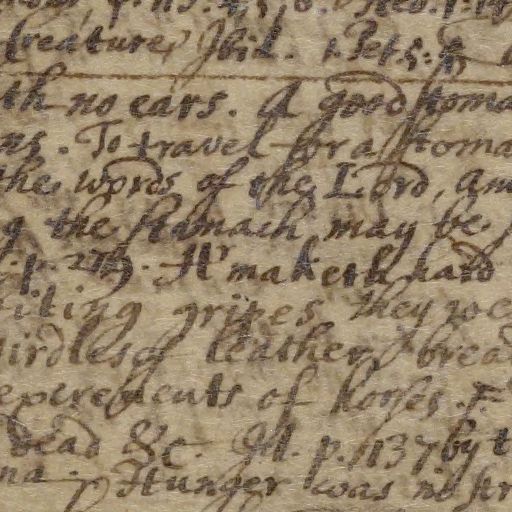 Creature, Ibid. 1. Pet. 5.
th no ears. A good stoma
ns. To travel for a stoma
the words of the Lord, Am
g the stomach may be
maketh hard
iting gripes they we
irdles of leather, bread
excrements of horses. F.
dead &c. Ib. p. 1137 by t
na. Hunger was no str